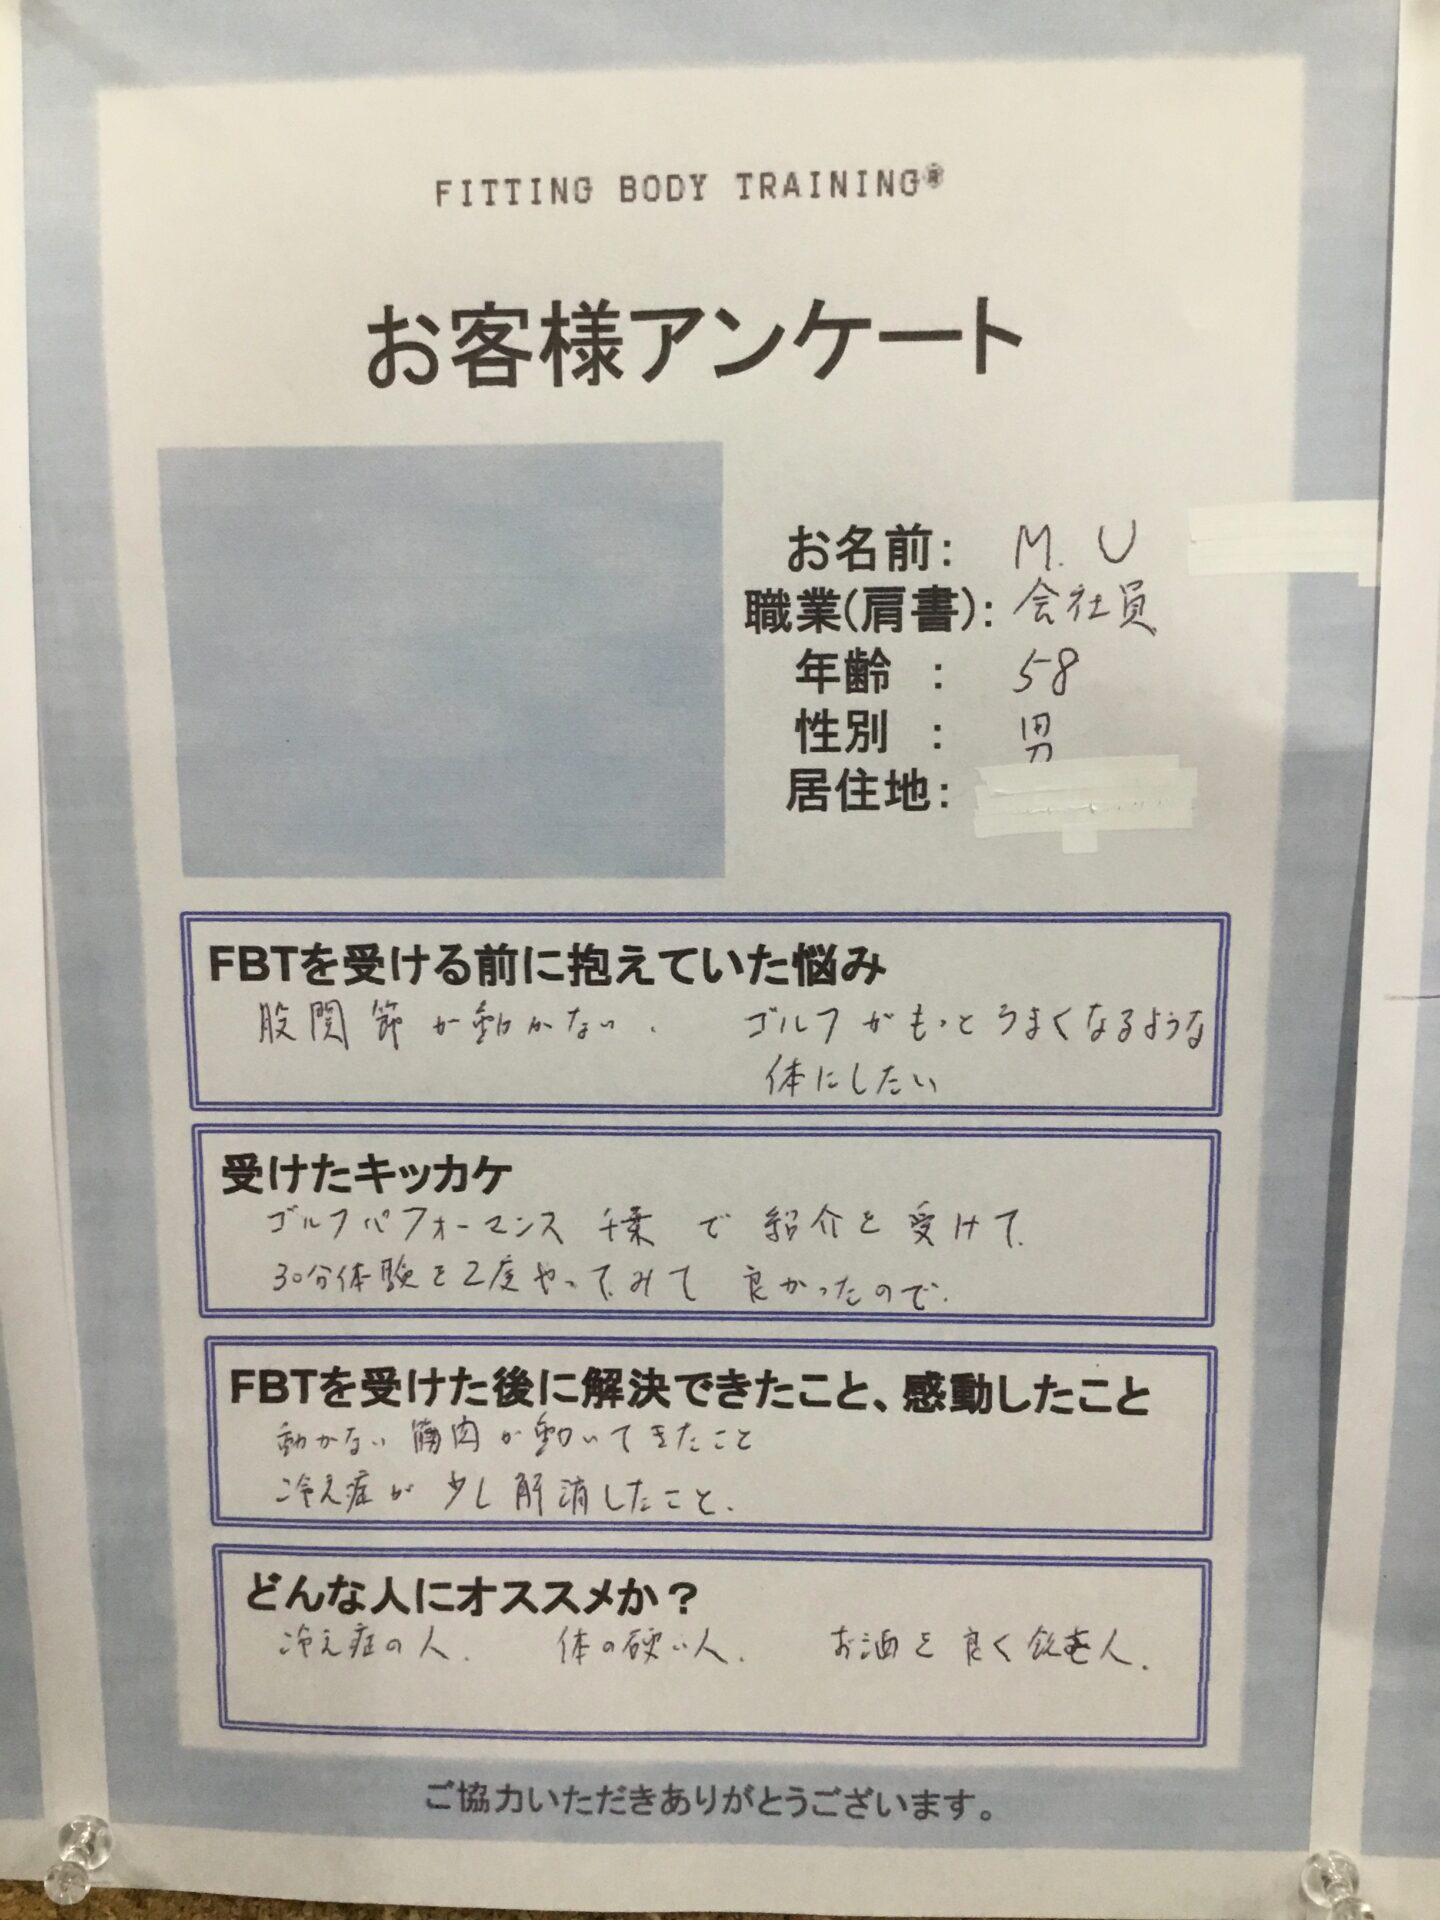 FITTING BODY TRAINING®
お客様アンケート
お名前： M. U
職業(肩書)：会社員
年齢 ： 58
性別 ： 男
居住地：
FBTを受ける前に抱えていた悩み
股関節が動かない. ゴルフがもっとうまくなるような
体にしたい
受けたキッカケ
ゴルフパフォーマンス千葉で紹介を受けて.
30分体験を2度やってみて良かったので.
FBTを受けた後に解決できたこと、感動したこと
動かない筋肉が動いてきたこと
冷え症が少し解消したこと.
どんな人にオススメか？
冷え症の人. 体の硬い人. お酒を良く飲む人.
ご協力いただきありがとうございます。